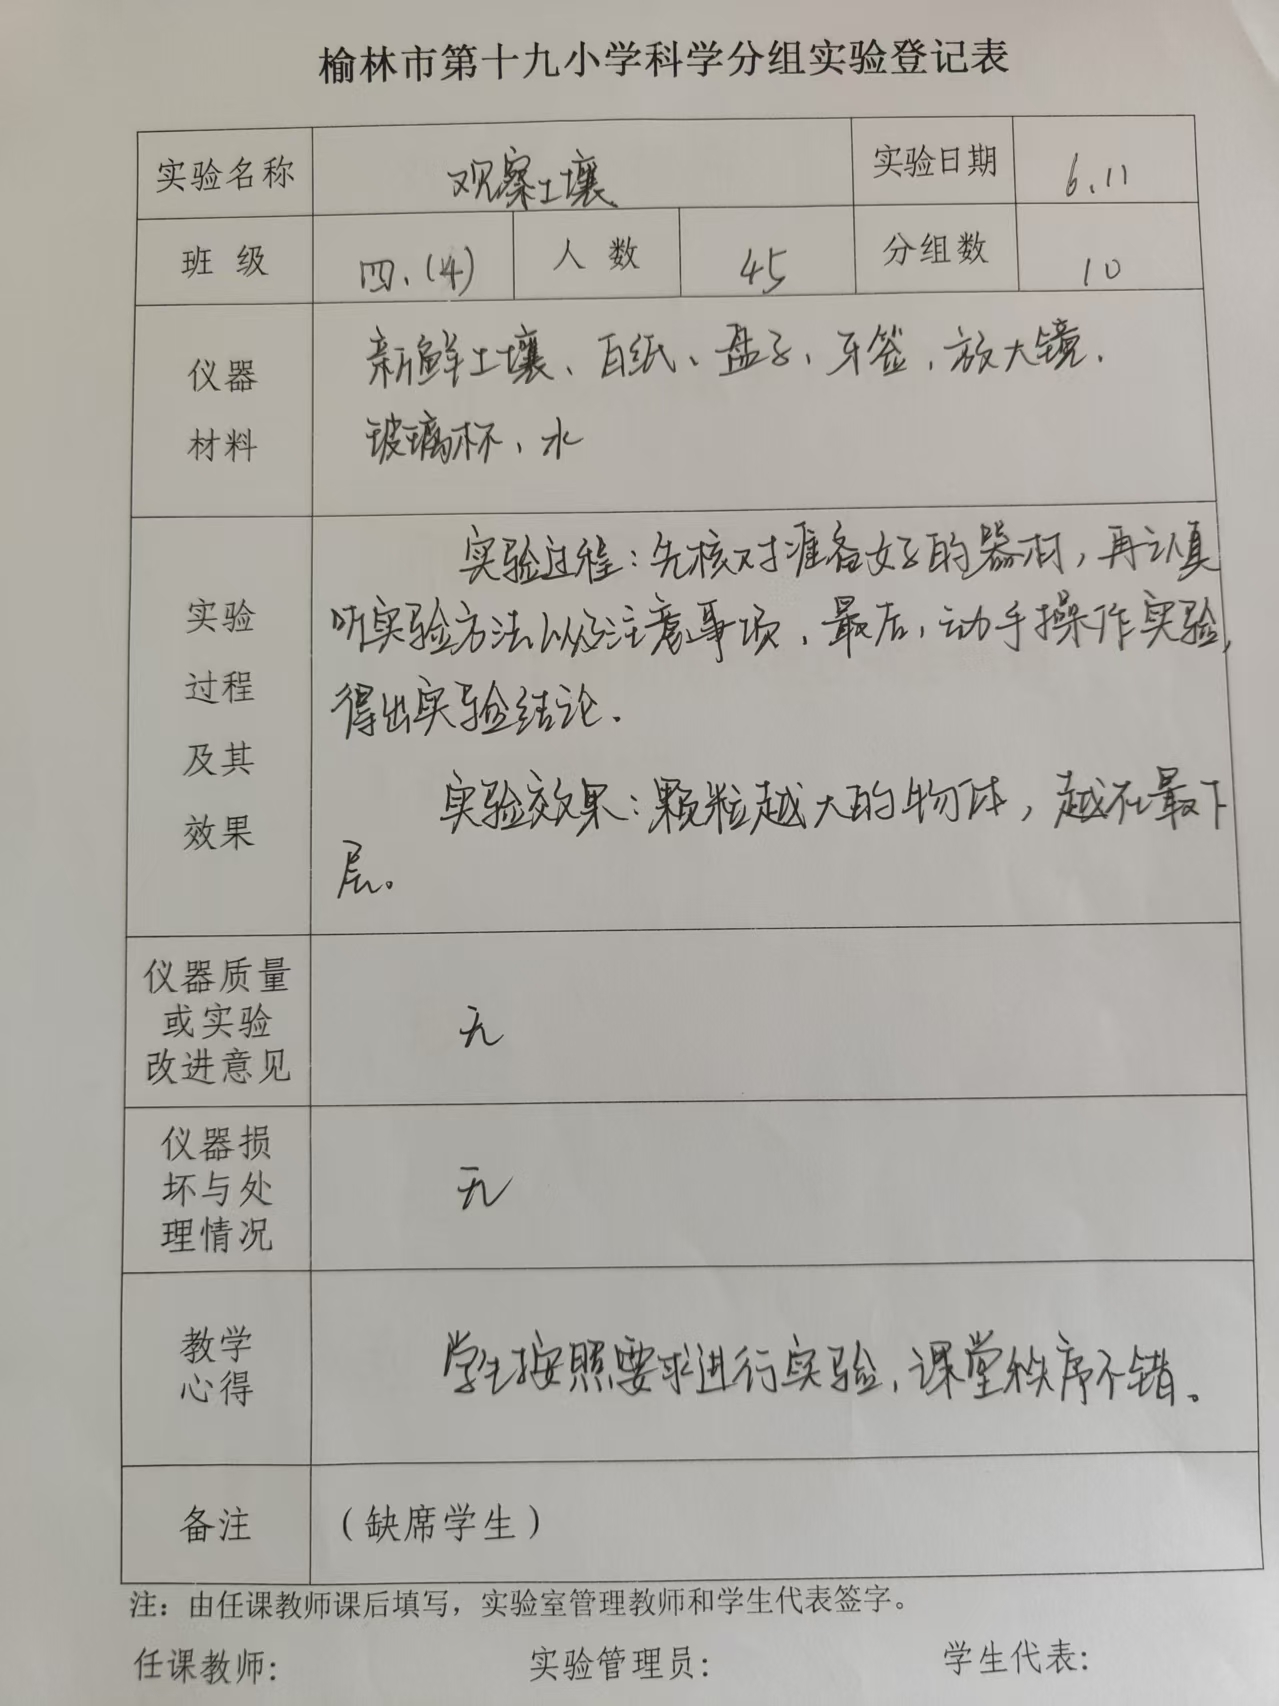 榆林市第十九小学科学分组实验登记表
实验名称 观察土壤 实验日期 6.11
班 级 四.(4) 人 数 45 分组数 10
仪器
材料
新鲜土壤、白纸、盘子、牙签、放大镜、
玻璃杯、水
实验
过程
及其
效果
实验过程:先核对准备好的器材,再认真
听实验方法以及注意事项,最后,动手操作实验,
得出实验结论.
实验效果:颗粒越大的物体,越在最下
层。
仪器质量
或实验
改进意见
无
仪器损
坏与处
理情况
无
教学
心得
学生按照要求进行实验,课堂秩序不错。
备注 (缺席学生)
注:由任课教师课后填写,实验室管理教师和学生代表签字。
任课教师: 实验管理员: 学生代表: